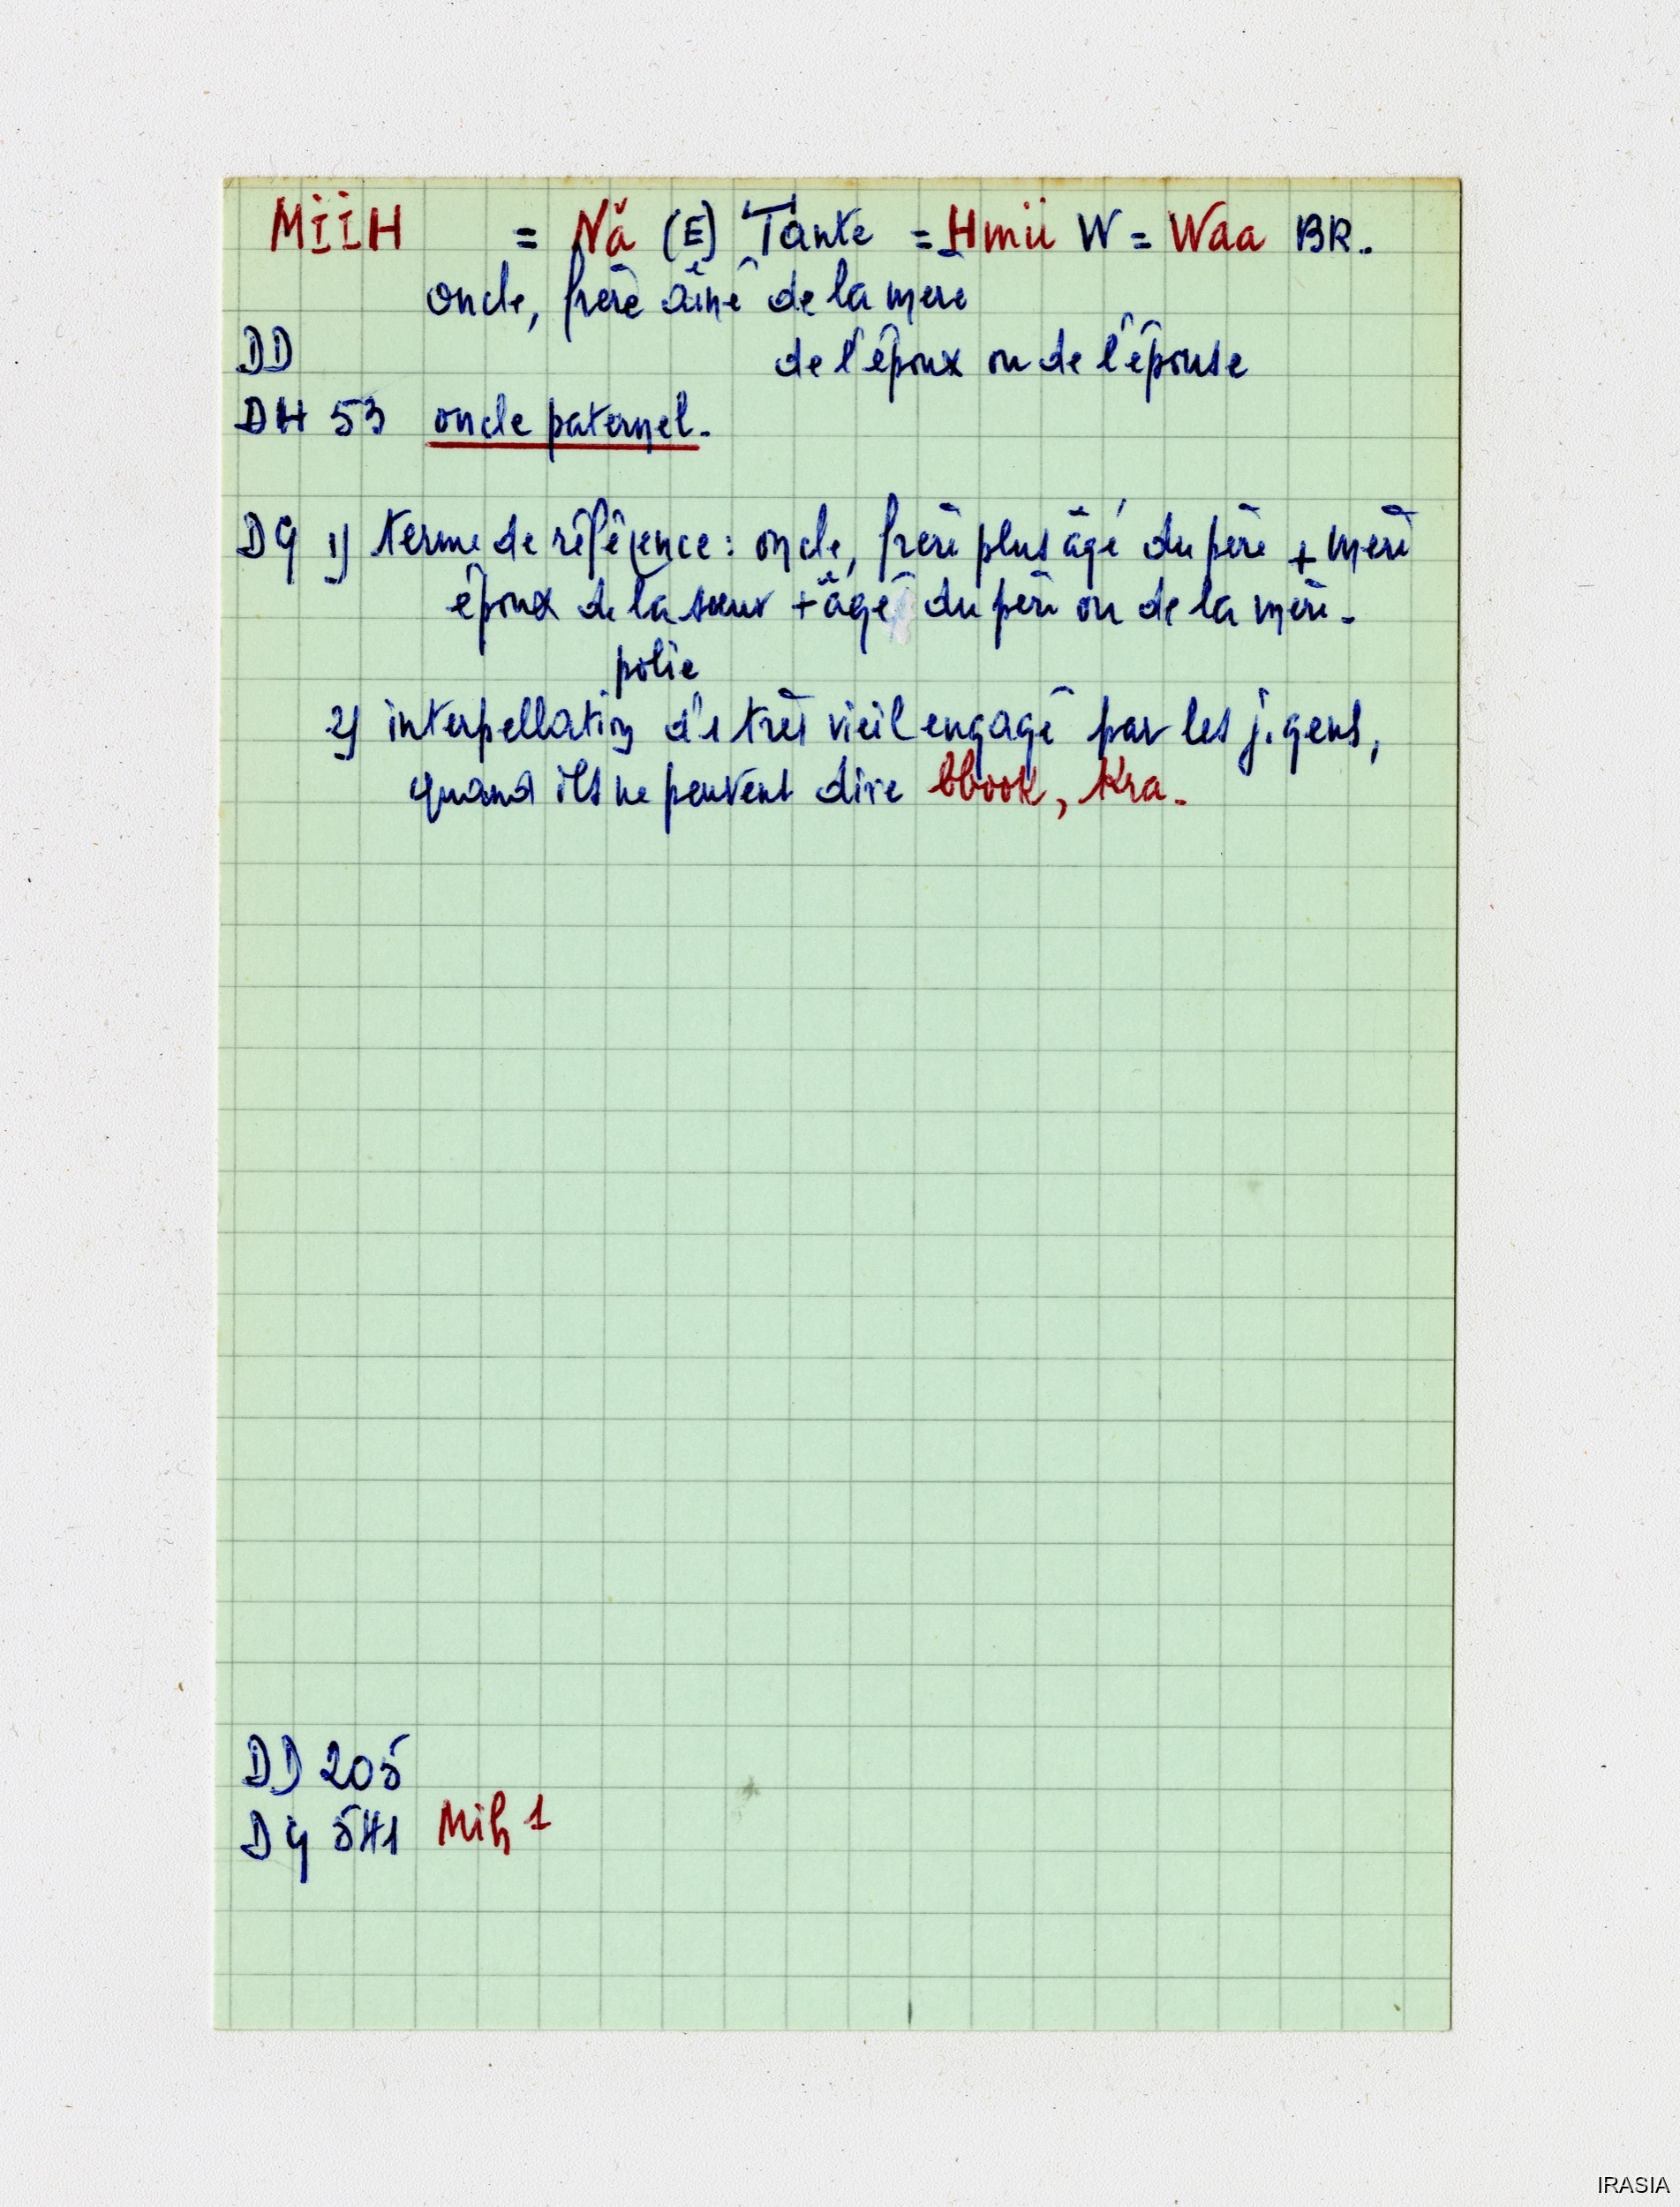 MIIH = Nă (E) Tante = Hmii W = Waa BR.
oncle, frère aîné de la mère
DD de l'époux ou de l'épouse
DH 53 oncle paternel.
DG 1) terme de référence : oncle, frère plus âgé du père + mère
époux de la sœur + âgé du père ou de la mère.
polie
2) interpellation d'1 très vieil engagé par les j. gens,
quand ils ne peuvent dire bbook, kra.
DD 205
DG 541 Mih 1
IRASIA